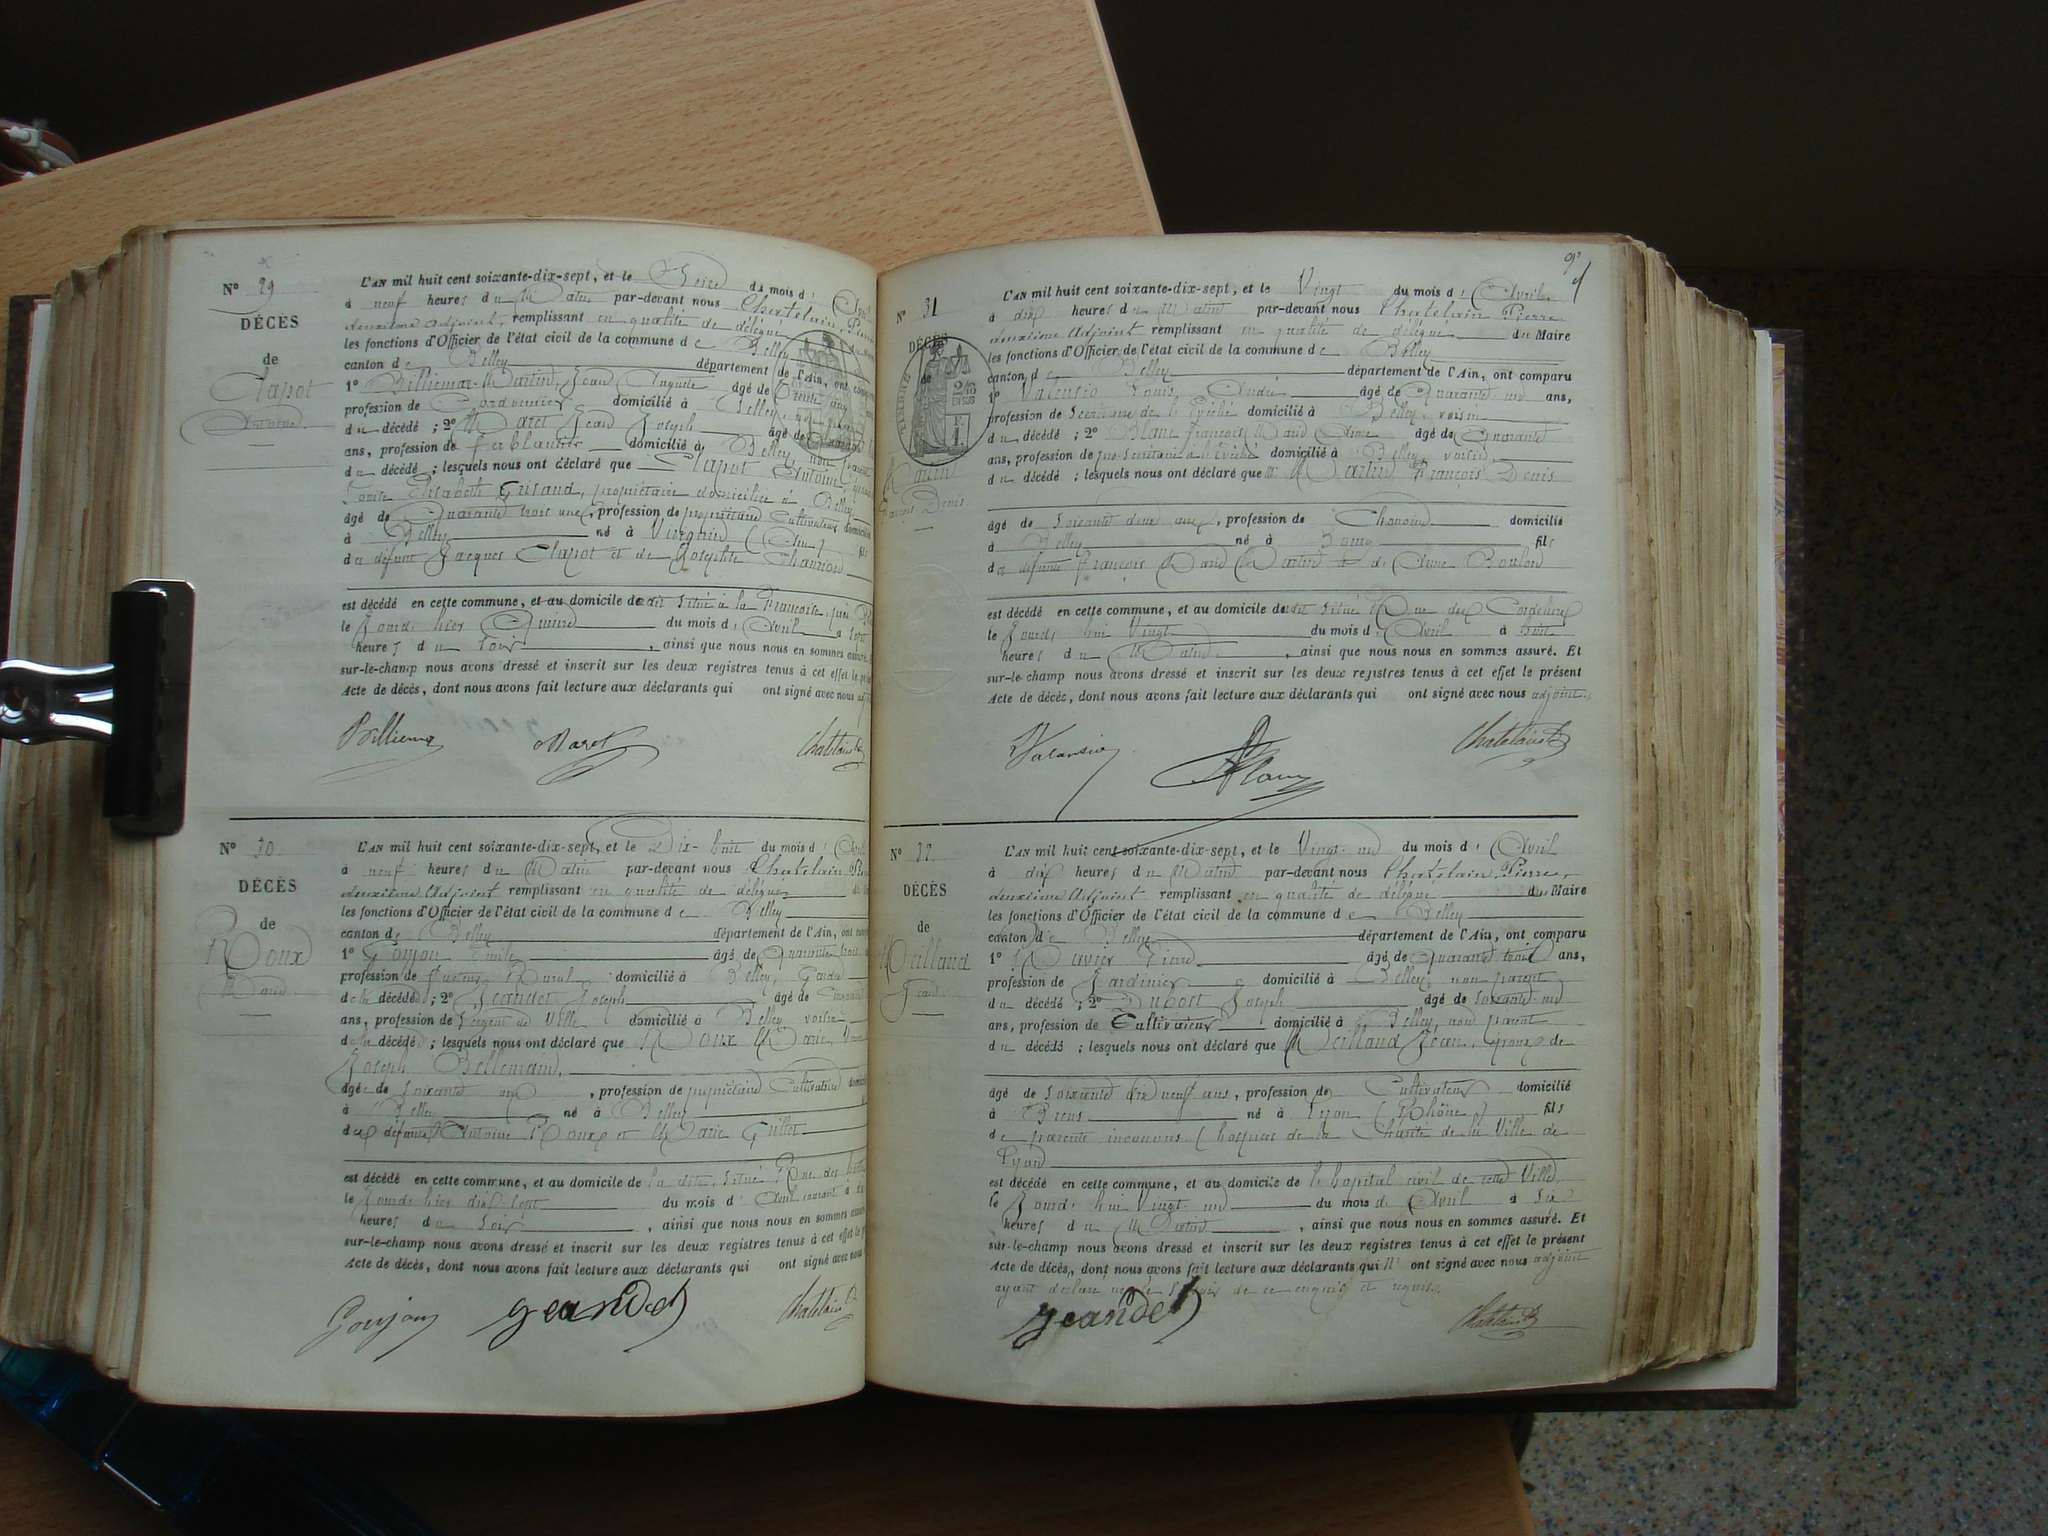 Nº 29
DÉCÈS
de
Clapot
Antoine
L'AN mil huit cent soixante-dix-sept, et le Seize du mois d'
à neuf heures du Matin par-devant nous Chatelain
deuxième Adjoint, remplissant en qualité de délégué
les fonctions d'Officier de l'état civil de la commune de Belley
canton de Belley département de l'Ain, ont
1º Billiemaz Jean Auguste âgé de Trente
profession de domicilié à Belley
du décédé ; 2º Maret Jean Joseph âgé de
ans, profession de ferblantier domicilié à Belley, non
du décédé ; lesquels nous ont déclaré que Clapot Antoine,
Louise Elisabeth propriétaire domiciliée à Belley
âgé de Quarante trois ans, profession de propriétaire Cultivateur
à Belley né à Virignin (Ain) fils
des défunts Jacques Clapot et de Josephte
est décédé en cette commune, et au domicile de situé à la
le Jourd'hier Quinze du mois d'Avril à
heures du soir, ainsi que nous nous en sommes
sur-le-champ nous avons dressé et inscrit sur les deux registres tenus à cet effet le
Acte de décès, dont nous avons fait lecture aux déclarants qui ont signé avec nous
Billiemaz Maret Chatelain
Nº 30
DÉCÈS
de
Roux
Marie
L'AN mil huit cent soixante-dix-sept, et le Dix-huit du mois d'
à neuf heures du Matin par-devant nous Chatelain
deuxième Adjoint remplissant en qualité de délégué
les fonctions d'Officier de l'état civil de la commune de Belley
canton de Belley département de l'Ain, ont
1º Goujon Emile âgé de Quarante
profession de Facteur Rural domicilié à Belley, Gendre
de la décédée ; 2º Jeandet Joseph âgé de
ans, profession de Sergent de Ville domicilié à Belley voisin
de la décédée ; lesquels nous ont déclaré que Roux Marie,
Joseph Bellemain,
âgée de soixante ans, profession de propriétaire Cultivatrice
à Belley née à Belley
des défunts Antoine Roux et Marie Guillot
est décédé en cette commune, et au domicile de la dite, situé Rue des
le Jourd'hier dix-sept du mois d'Avril courant à
heures du soir, ainsi que nous nous en sommes
sur-le-champ nous avons dressé et inscrit sur les deux registres tenus à cet effet le
Acte de décès, dont nous avons fait lecture aux déclarants qui ont signé avec
Goujon Jeandet Chatelain
Nº 31
DÉCÈS
de
TIMBRE
Martin
François Denis
L'AN mil huit cent soixante-dix-sept, et le Vingt du mois d'Avril
à dix heures du Matin par-devant nous Chatelain Pierre
deuxième Adjoint remplissant en qualité de délégué du Maire
les fonctions d'Officier de l'état civil de la commune de Belley
canton de Belley département de l'Ain, ont comparu
1º Valensio Louis André âgé de Quarante un ans,
profession de Secrétaire de l'Evêché domicilié à Belley, voisin
du décédé ; 2º Blanc François Marie âgé de Quarante
ans, profession de pro Secrétaire à l'Evêché domicilié à Belley, voisin
du décédé ; lesquels nous ont déclaré que Martin François Denis
âgé de soixante ans, profession de Chanoine domicilié
à Belley né à Bourg fils
des défunts François Martin et de Anne
est décédé en cette commune, et au domicile de situé Rue des Cordeliers
le Jourd'hui Vingt du mois d'Avril à
heures du Matin, ainsi que nous nous en sommes assuré. Et
sur-le-champ nous avons dressé et inscrit sur les deux registres tenus à cet effet le présent
Acte de décès, dont nous avons fait lecture aux déclarants qui ont signé avec nous adjoint.
Valansio Blanc Chatelain
Nº 32
DÉCÈS
de
Meilland
Jean
L'AN mil huit cent soixante-dix-sept, et le Vingt un du mois d'Avril
à dix heures du Matin par-devant nous Chatelain Pierre,
deuxième Adjoint remplissant en qualité de délégué du Maire
les fonctions d'Officier de l'état civil de la commune de Belley
canton de Belley département de l'Ain, ont comparu
1º Ravier Pierre âgé de Quarante ans,
profession de Jardinier domicilié à Belley, non parent
du décédé ; 2º Dubost Joseph âgé de soixante un
ans, profession de Cultivateur domicilié à Belley, non parent
du décédé ; lesquels nous ont déclaré que Meilland Jean, époux de
âgé de soixante dix neuf ans, profession de Cultivateur domicilié
à Brens né à Lyon (Rhône) fils
de parents inconnus (hospice de la Charité de la Ville de
Lyon
est décédé en cette commune, et au domicile de l'hopital civil de cette Ville
le Jourd'hui Vingt un du mois d'Avril à six
heures du Matin, ainsi que nous nous en sommes assuré. Et
sur-le-champ nous avons dressé et inscrit sur les deux registres tenus à cet effet le présent
Acte de décès, dont nous avons fait lecture aux déclarants qui n' ont signé avec nous adjoint
ayant déclaré ne le savoir de ce enquis et requis.
Jeandet Chatelain